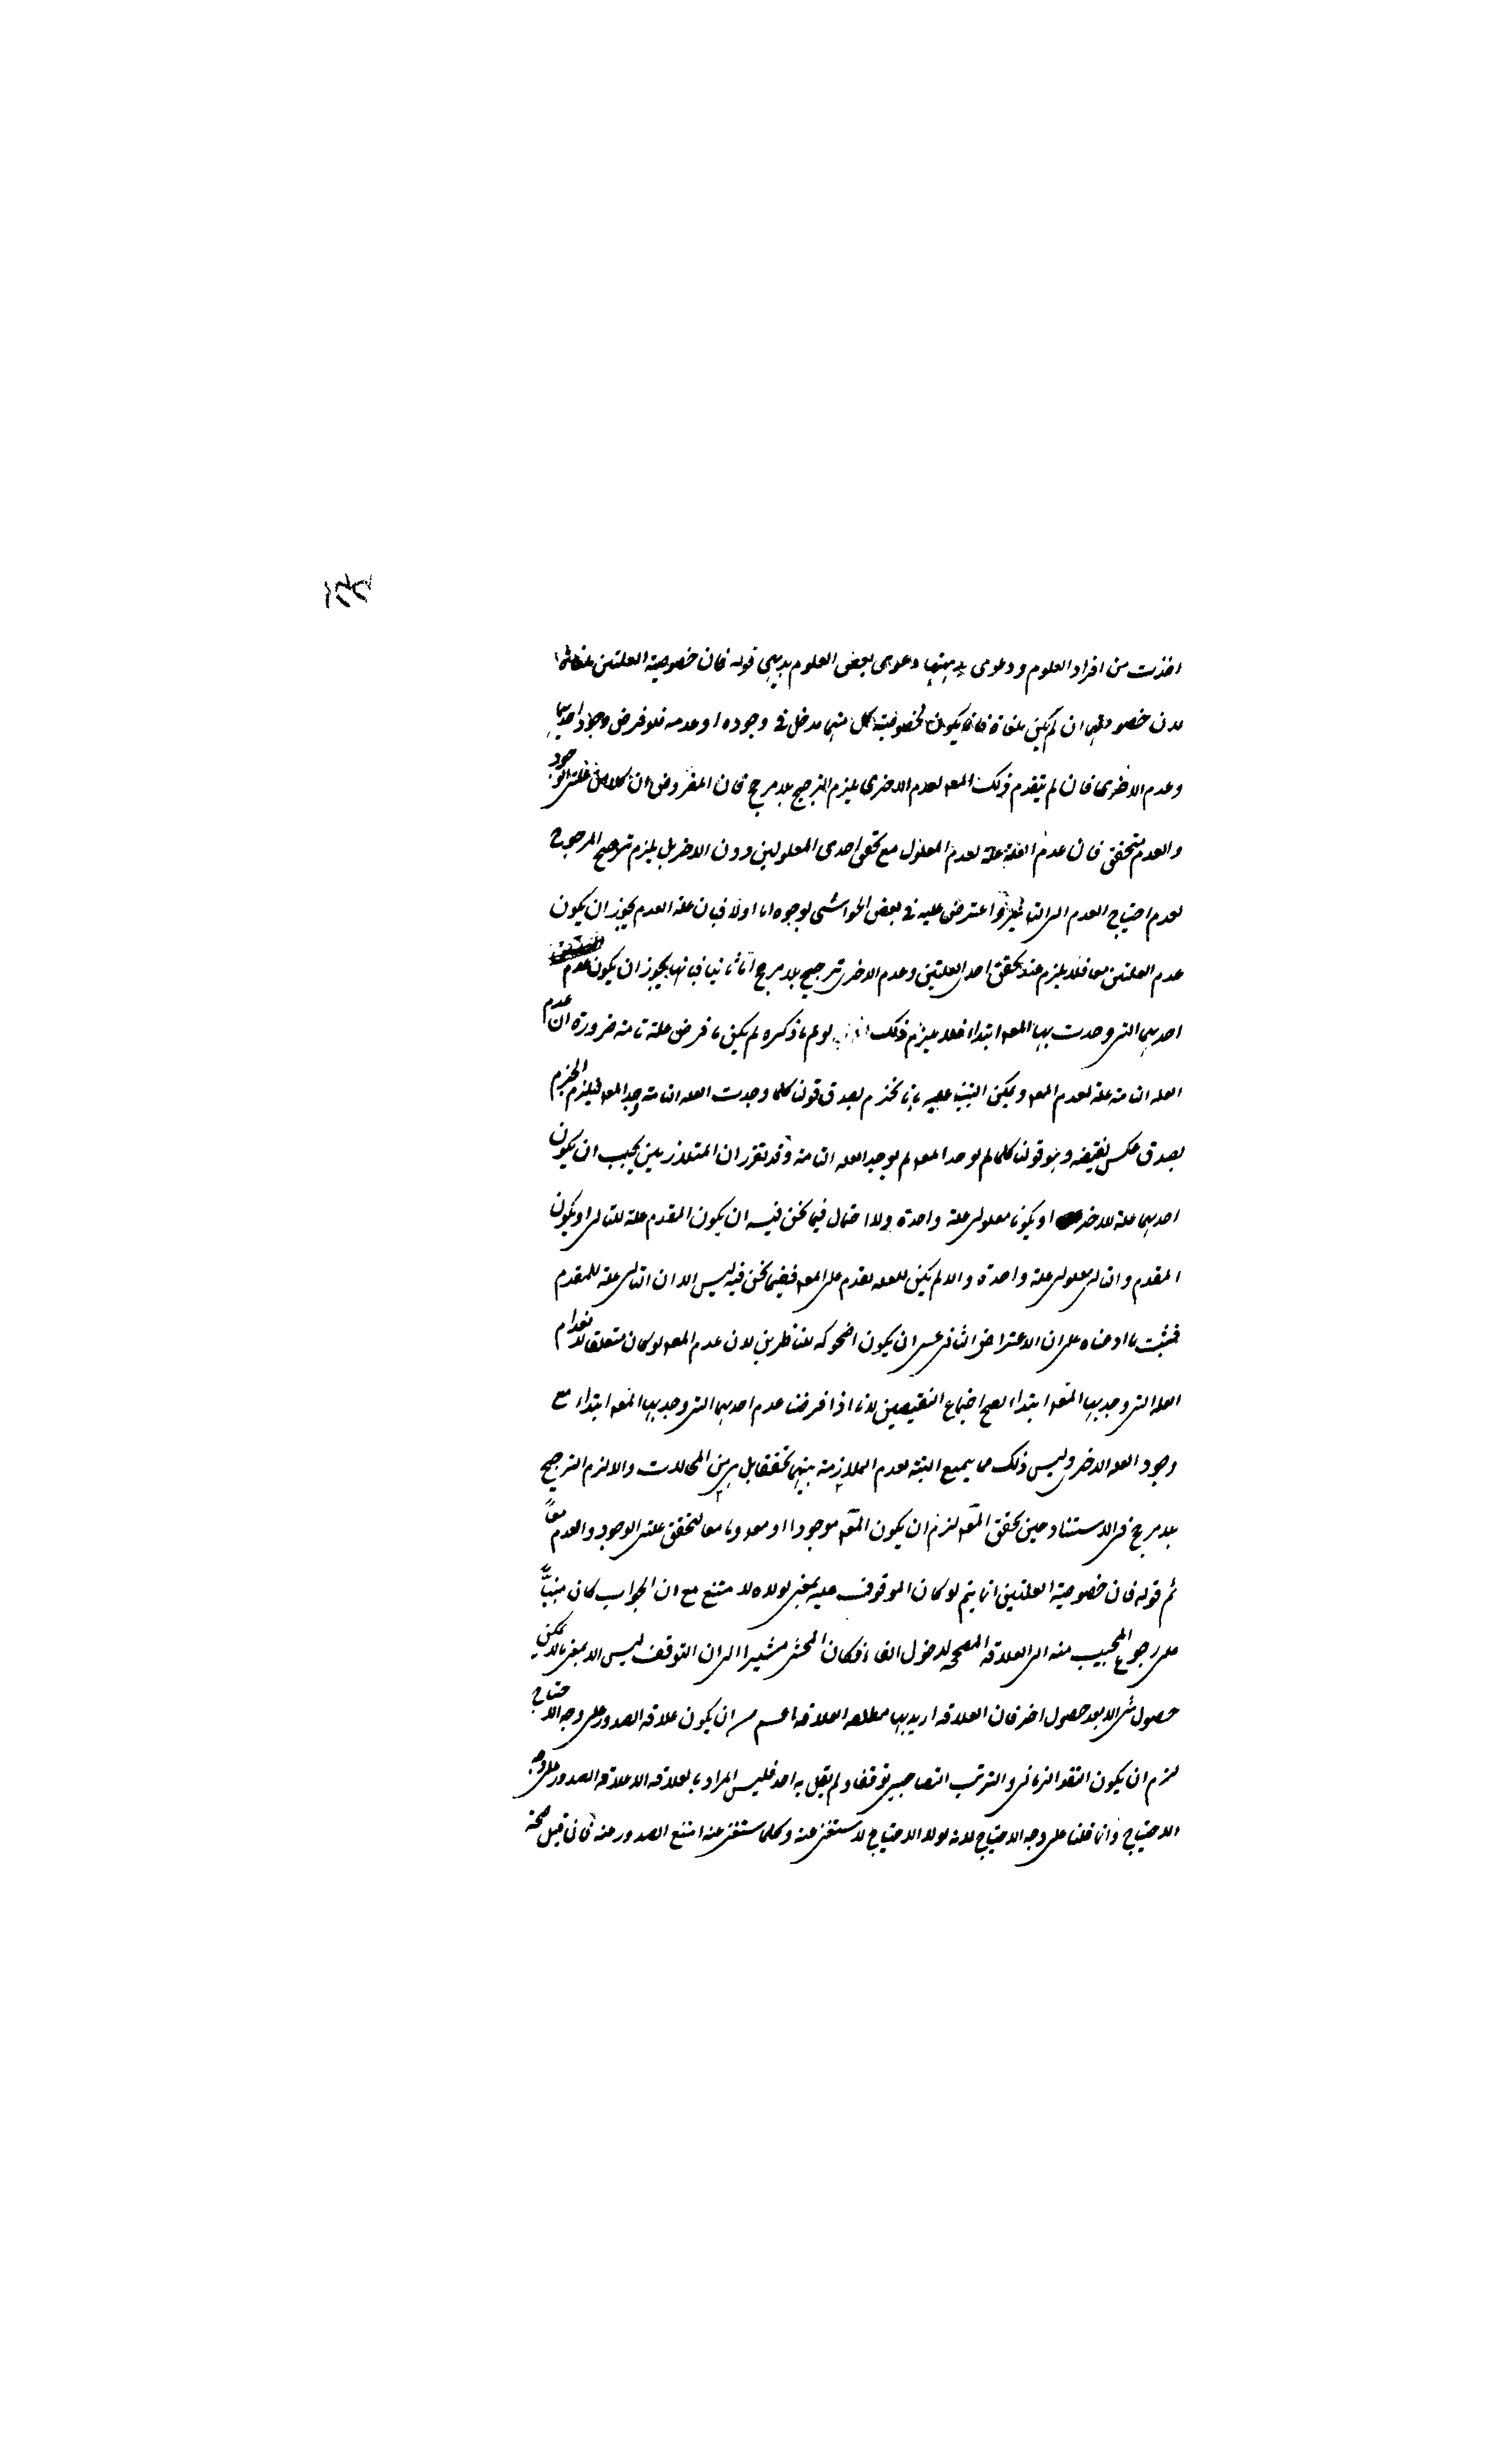 اخذت من افراد العلوم ودعوى بديهتها دعوى بعض العلوم بديهى قوله فان خصوصية العلتين ملغاة
لان خصوصيتهما ان لم يكن ملغاة فاما يكون لخصوصية كل منهما مدخل فى وجوده او عدمه فلو فرض وجود احديهما
وعدم الاخرى فان لم يتقدم ذلك المعـ لعدم الاخرى يلزم الترجيح بلا مرجح فان المفروض ان كلا من علتى الوجود
والعدم متحقق فان عدم العلة علة لعدم المعلول مع تحقق احدى المعلولين دون الاخر بل يلزم ترجيح المرجوح
لعدم احتياج العدم الى التاثير واعترض عليه فى بعض الحواشى بوجوه اما اولا فبان علة العدم يجوز ان يكون
عدم العلتين معا فلا يلزم عند تحقق احدى العلتين وعدم الاخرى ترجيح بلا مرجح اما ثانيا فبانه يجوز ان يكون عدم
احديهما التى وجدت بها المعـ ابتداء فلا يلزم ذلك لو تم ما ذكره لم يكن ما فرض علة تامة ضرورة ان عدم
العلة التامة علة لعدم المعـ ويمكن التنبيه عليه بانا نجزم بصدق قولنا كلما وجدت العلة التامة وجد المعـ فيلزم الجزم
بصدق عكس نقيضه وهو قولنا كلما لم يوجد المعـ لم يوجد العلة التامة وقد تقرر ان المتلازمين يجب ان يكون
احديهما علة للاخر او يكونا معلولى علة واحدة ولا احتمال فيما نحن فيه ان يكون المقدم علة للتالى او يكون
المقدم والتالى معلولى علة واحدة والا لم يكن للعلة تقدم على المعـ ففيما نحن فيه ليس الا ان التالى علة للمقدم
فثبت ما ادعناه على ان الاعتراض الثانى عسى ان يكون اضحوكة للناظرين لان عدم المعـ لو كان متعلقا لانعدام
العلة التى وجد بها المعـ ابتداء لصح اجتماع النقيضين لانا اذا فرضنا عدم احديهما التى وجد بها المعـ ابتداء مع
وجود العلة الاخرى وليس ذلك مما يمتنع البتة لعدم الملازمة بينهما تحققا بل من المحالات والا لزم الترجيح
بلا مرجح فى الاستناد حين تحقق المعـ لزم ان يكون المعـ موجودا او معدوما معا لتحقق علتى الوجود والعدم معا
ثم قوله فان خصوصية العلتين انما يتم لو كان الموقوف عليه بمعنى لولاه لامتنع مع ان الجواب كان مبنيا
على رجوع المجيب منه الى العلاقة المصححة لدخول الفاء فكان المحشى مشيرا الى ان التوقف ليس الا بمعنى ما لا يمكن
حصول شئ الا بعد حصول اخر فان العلاقة اريد بها مطلق العلاقة اعم من ان يكون علاقة الصدور على وجه الاحتياج
لزم ان يكون التقدم الزمانى والترتب التصاحبى توقفا ولم يقل به احد فليس المراد بالعلاقة الا علاقة الصدور على وجه
الاحتياج وانما قلنا على وجه الاحتياج لانه لولا الاحتياج لاستغنى عنه وكلما استغنى عنه امتنع الصدور عنه فان قيل